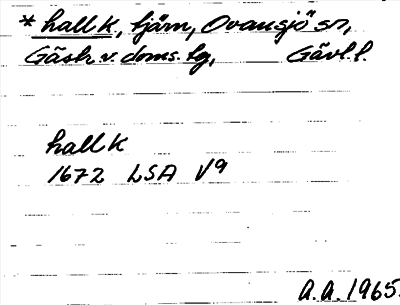 *hall k, tjärn, Ovansjö sn,
Gästr. v. doms. tg, Gävl. l.
hall k
1672 LSA V9
A.A. 1965.